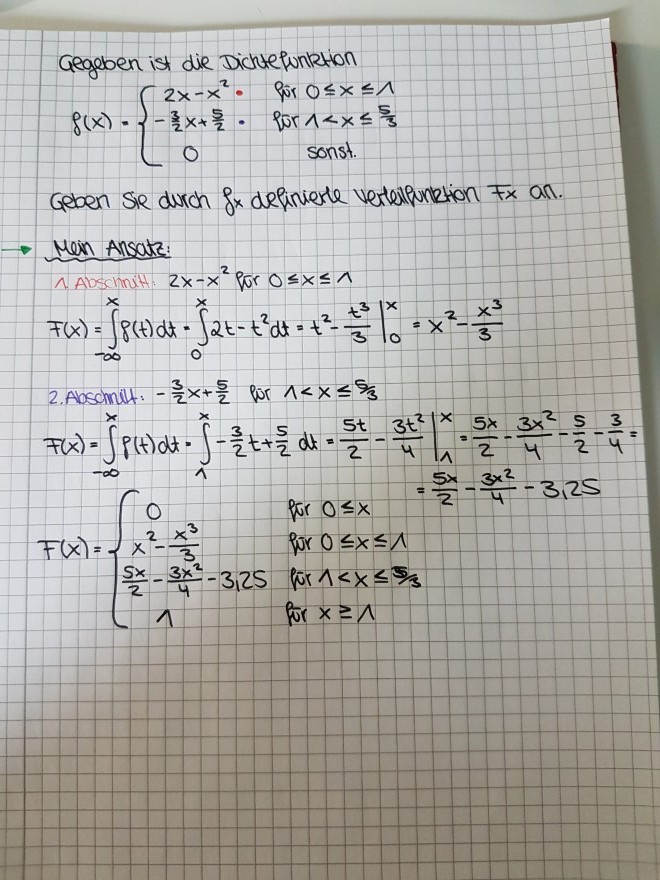 Gegeben ist die Dichtefunktion
f(x) = { 2x-x² • für 0 ≤ x ≤ 1
-3/2x+5/2 • für 1 < x ≤ 5/3
0 sonst.
Geben Sie durch fx definierte Verteilfunktion Fx an.
→ Mein Ansatz:
1. Abschnitt: 2x-x² für 0 ≤ x ≤ 1
F(x) = ∫_{-∞}^{x} f(t) dt = ∫_{0}^{x} 2t - t² dt = t² - t³/3 |_{0}^{x} = x² - x³/3
2. Abschnitt: -3/2x+5/2 für 1 < x ≤ 5/3
F(x) = ∫_{-∞}^{x} f(t) dt = ∫_{1}^{x} -3/2t+5/2 dt = 5t/2 - 3t²/4 |_{1}^{x} = 5x/2 - 3x²/4 - 5/2 - 3/4 =
= 5x/2 - 3x²/4 - 3,25
F(x) = { 0 für 0 ≤ x
x² - x³/3 für 0 ≤ x ≤ 1
5x/2 - 3x²/4 - 3,25 für 1 < x ≤ 5/3
1 für x ≥ 1